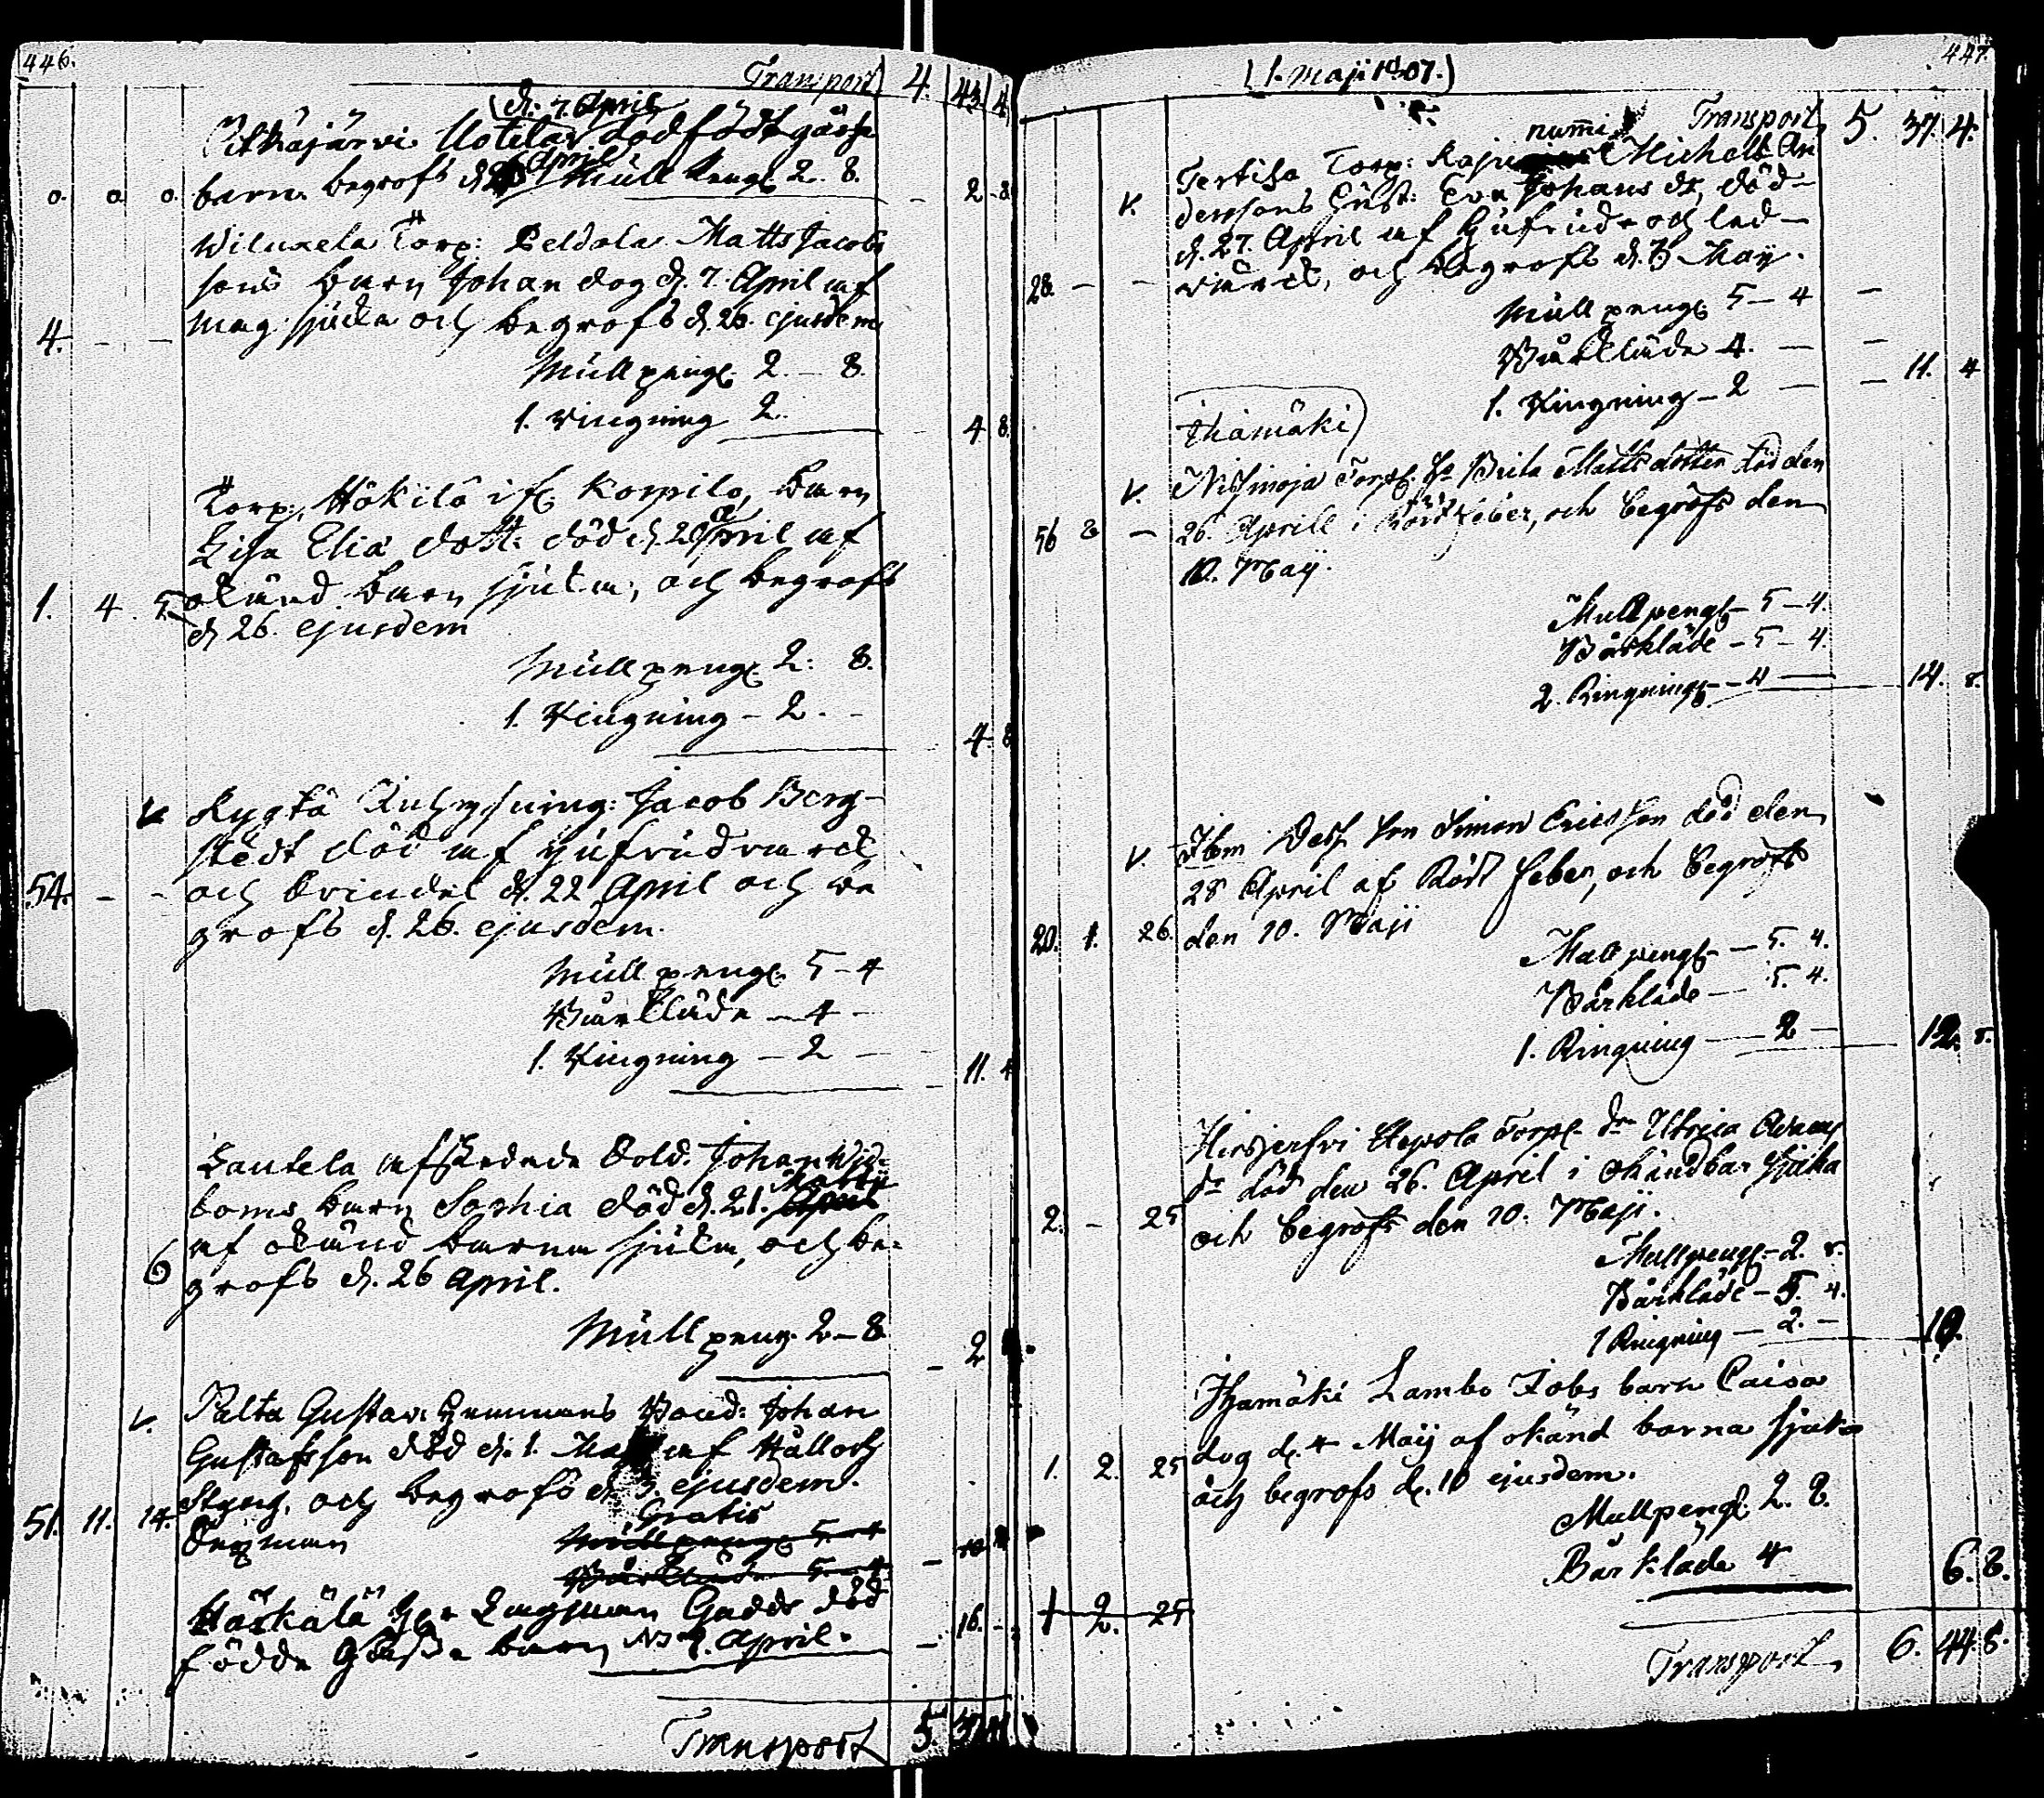 446.
Transport 4. 43. 4
(d. 7. April
Pitkäjärvi Uotelas dödfödt gåsse
April
o. o. o. barn begrofs d. 26 Mullpeng 2. 8. - 2 - 8
Torp: Peldola Matts Jacobs
sons barn Johan dog d. 7. April af
4. - - mag sjuka och begrofs d. 26. ejusdem
Mullpeng. 2. - 8.
1. ringning 2. 4 8.
Torp. Hökilä if. Korpilo, barn
Lisa Elia dott: död d. 20 April af
1. 4. 5. okänd barn sjuka, och begrofs
d. 26. ejusdem
Mullpeng. 2: 8.
1. Ringning - 2. - 4 8
v. Rygtä Jacob Berg-
stedt död af
54. - - och d. 22 April och be
grofs d. 26. ejusdem.
Mullpeng. 5 - 4
Bårkläde - 4 -
1. Ringning - 2 - 11. 4
Lautela afskedade Sold. Johan Wid-
Martii
boms barn Sophia död d. 21. April
af okänd barna sjuka, och be-
6 grofs d. 26 April.
Mullpeng. 2 - 8 - 2
v. Palta Gustav: Johan
Gustafsson död d. 1. Maj af Håll och
Styng, och begrofs d. 3. ejusdem.
51. 11. 14. Gratis
Mullpeng 5 - 4
Bårkläde 5 - 4 -
Häskälä Gadds död
födde Gåsse barn d. 9. April. - 16. -
Transport 5. 37. 4
447.
(1. Maji 1807.)
Transport, 5. 37. 4.
nummi
Tertila Torp: Michell An
v. derssons Hust: Eva Johans dr, död
d. 27. April af hufvud och led-
28. - - värck, och begrofs d. 3 May.
Mullpeng 5 - 4 -
Bårkläde 4. - -
1. Ringning - 2 - - 11. 4
Ihamäki)
v. Torp. Brita Matts dotter död den
56 8 - 26. Aprill i Röt feber, och begrofs den
10. May.
Mullpeng - 5 - 4.
Bårkläde - 5 - 4.
2. Ringning - 4 - 14. 8.
v. Ibm Dess son Simon Ericsson död den
28 April af Röt feber, och begrofs
20. 1. 26. den 10. Maji
Mullpeng - 5. 4.
Bårkläde - 5. 4.
1. Ringning - 2 - 12. 8.
Hirsjerfvi Torp. dr Ulrica
dr död den 26. April i okänd bar sjuka
2. - 25 och begrofs den 10. Maji.
Mullpeng - 2. 8.
Bårkläde - 5. 4.
1 Ringning - 2. - 10.
Ihamäki Lambo Jobs barn Caisa
dog d. 4 May af okänd barna sjuka
1. 2. 25 och begrofs d. 10 ejusdem.
Mullpeng. 2. 8.
Bårkläde 4 6. 8.
1 2. 25
Transport, 6. 44. 8.